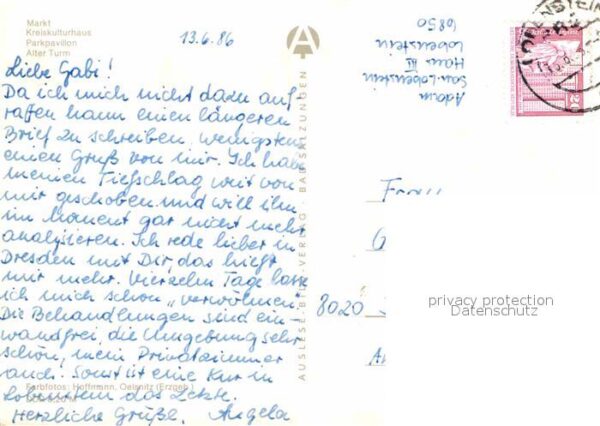 Markt
Kreiskulturhaus
Parkpavillon
Alter Turm
13.6.86
Liebe Gabi!
Da ich mich nicht dazu auf-
raffen kann einen längeren
Brief zu schreiben, wenigstens
einen Gruß von mir. Ich habe
meinen Tiefschlag weit von
mir geschoben und will ihn
im Moment gar nicht mehr
analysieren. Ich rede lieber in
Dresden mit Dir, das bringt
mir mehr. Vierzehn Tage lasse
ich mich schon „verwöhnen".
Die Behandlungen sind ein-
wandfrei, die Umgebung sehr
schön, mein Privatzimmer
auch. Sonst ist eine Kur in
Lobenstein das Letzte.
Herzliche Grüße, Angela
Farbfotos: Hoffmann, Oelsnitz (Erzgeb.)
AUSLESE-BILD-VERLAG · BAD SALZUNGEN
Adam
San. Lobenstein
Haus III
Lobenstein
6850
LOBENSTEIN
20
Frau
G
8020
A
privacy protection
Datenschutz